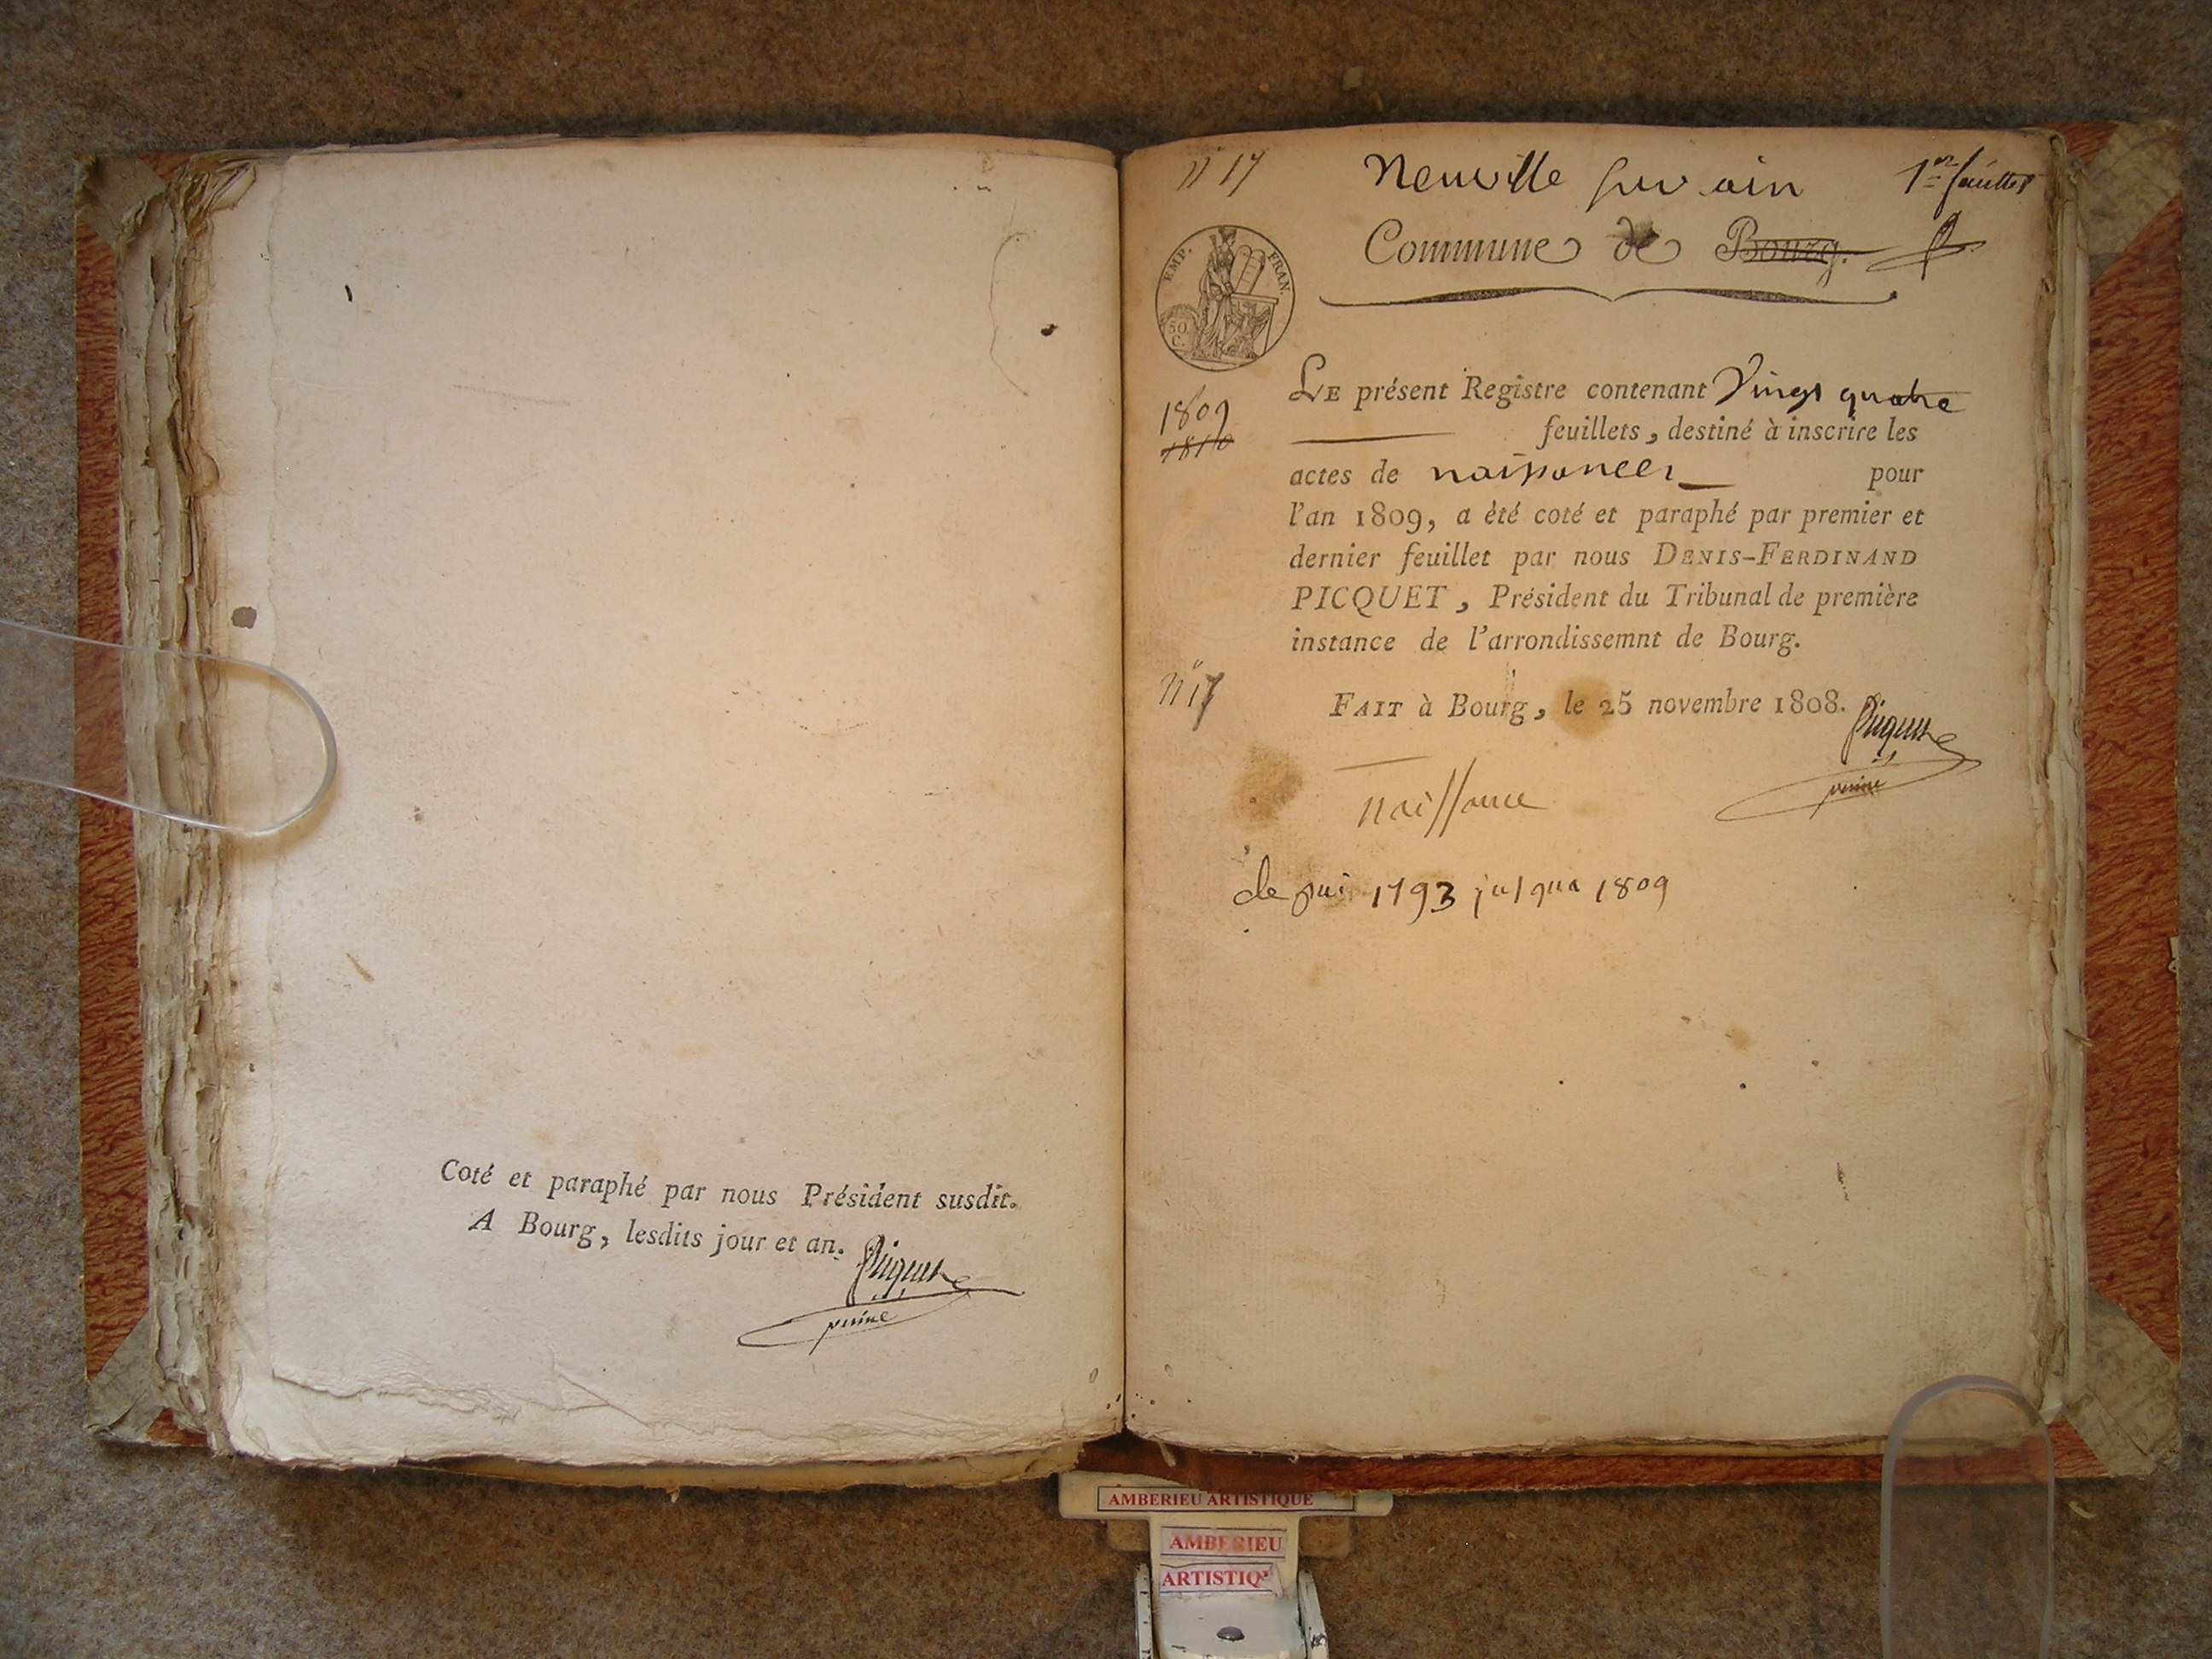 Coté et paraphé par nous Président susdit.
A Bourg, lesdits jour et an.
Picquet
n° 17
Neuville sur ain
1er feuillet
Commune de Bourg.
EMP. FRAN.
50 C.
1809
1810
LE présent Registre contenant Vingt quatre
feuillets, destiné à inscrire les
actes de naissances pour
l'an 1809, a été coté et paraphé par premier et
dernier feuillet par nous DENIS-FERDINAND
PICQUET, Président du Tribunal de première
instance de l'arrondissemnt de Bourg.
n° 17
FAIT à Bourg, le 25 novembre 1808.
Picquet
naissance
depui 1793 jusqua 1809
AMBERIEU ARTISTIQUE
AMBERIEU
ARTISTIQ